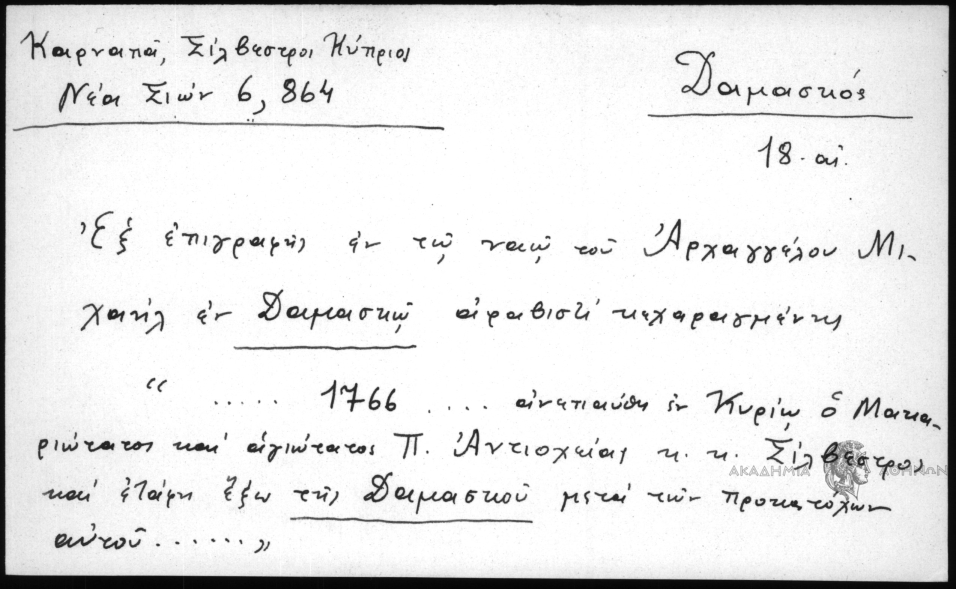 Καρναπᾶ, Σίλβεστρος Κύπριος
Νέα Σιών 6, 864
Δαμασκός
18. αἰ.
Ἐξ ἐπιγραφῆς ἐν τῷ ναῷ τοῦ Ἀρχαγγέλου Μι-
χαήλ ἐν Δαμασκῷ ἀραβιστί κεχαραγμένης
“ ..... 1766 .... ἀνεπαύθη ἐν Κυρίῳ ὁ Μακα-
ριώτατος καί ἁγιώτατος Π. Ἀντιοχείας κ. κ. Σίλβεστρος
καί ἐτάφη ἔξω τῆς Δαμασκοῦ μετά τῶν προκατόχων
αὐτοῦ ...... „
ΑΚΑΔΗΜΙΑ ΑΘΗΝΩΝ